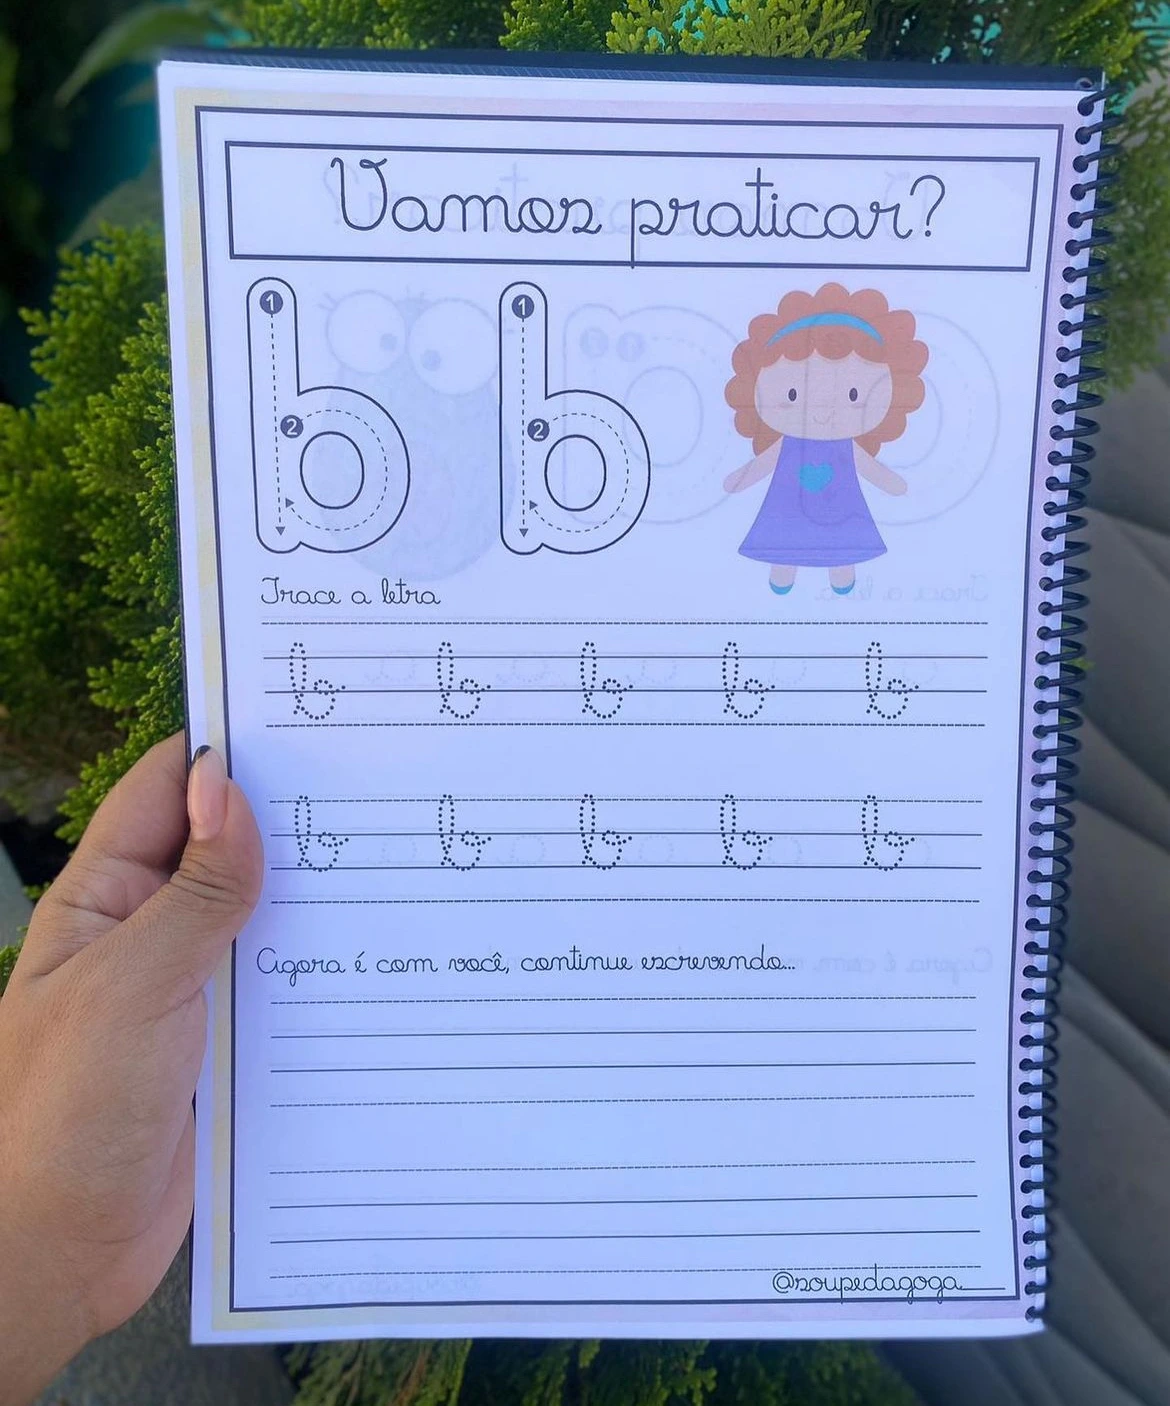 Vamos praticar?
1 1
2 2
Trace a letra
b b b b b
b b b b b
Agora é com você, continue escrevendo...
@soupedagoga